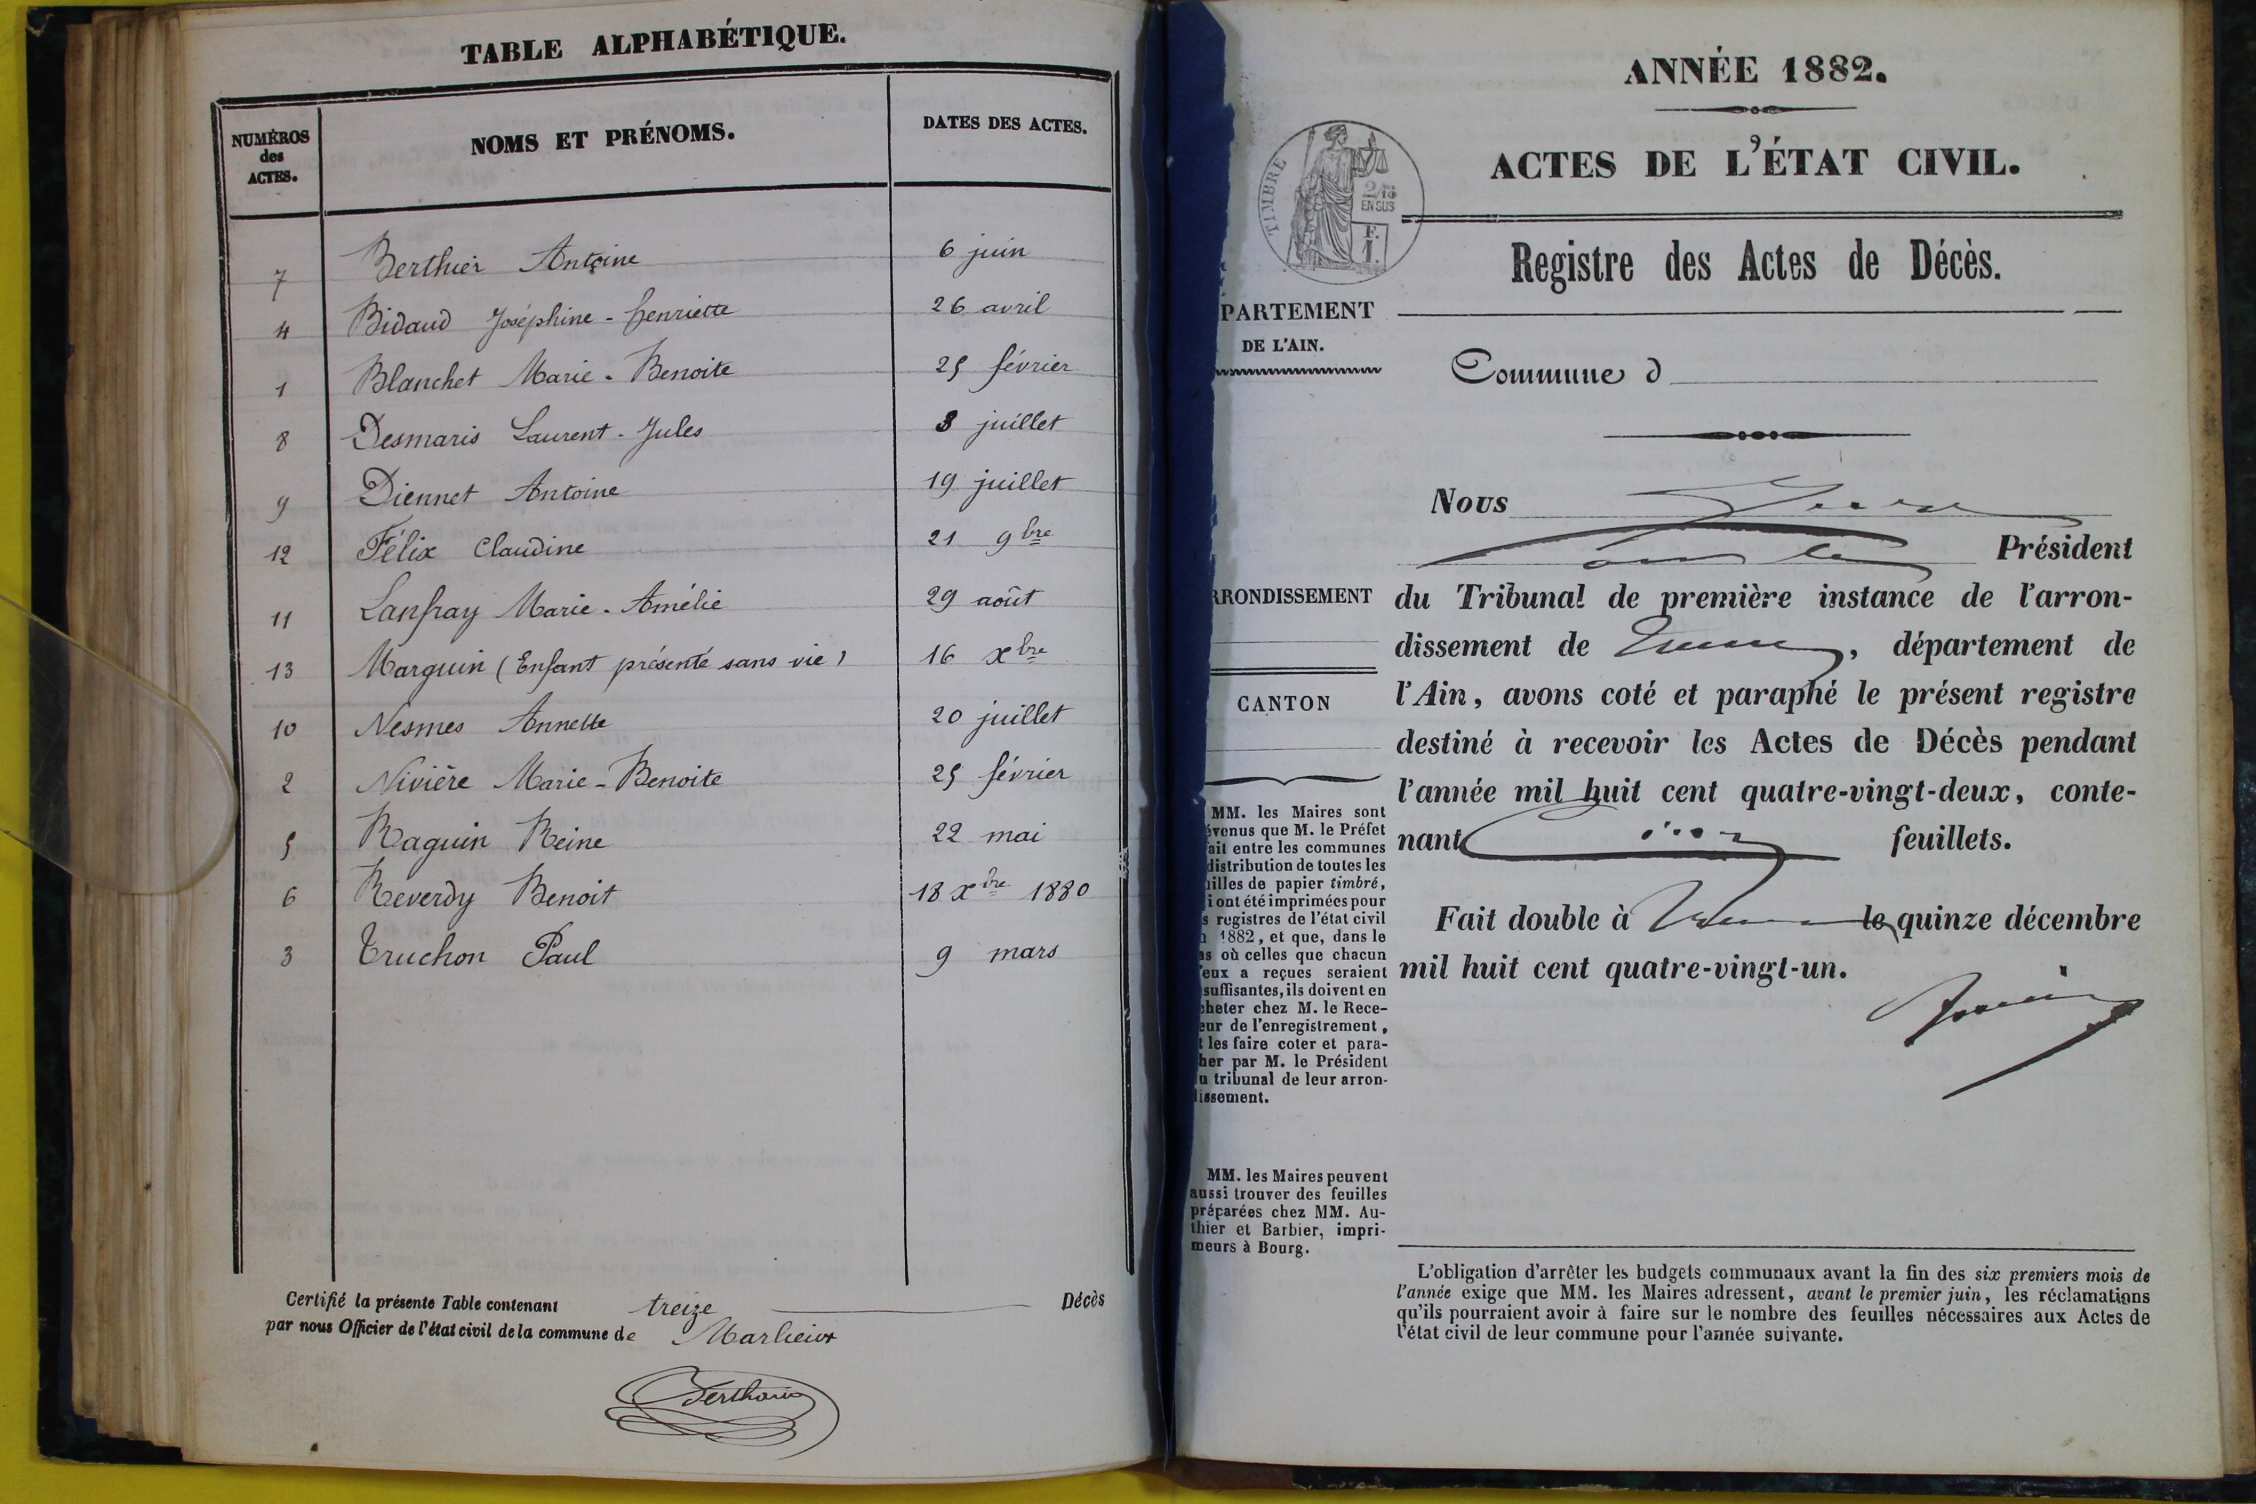 TABLE ALPHABÉTIQUE.
NUMÉROS des ACTES. NOMS ET PRÉNOMS. DATES DES ACTES.
7 Berthier Antoine 6 juin
4 Bidaud Joséphine - henriette 26 avril
1 Blanchet Marie - Benoite 25 février
8 Desmaris Laurent - Jules 8 juillet
9 Diennet Antoine 19 juillet
12 Félix Claudine 21 9bre
11 Lanfray Marie - Amélie 29 août
13 Marguin (Enfant présenté sans vie) 16 xbre
10 Nesmes Annette 20 juillet
2 Nivière Marie - Benoite 25 février
5 Raguin Reine 22 mai
6 Reverdy Benoit 18 xbre 1880
3 Truchon Paul 9 mars
Certifié la présente Table contenant treize Décès
par nous Officier de l'état civil de la commune de Marlieux
ANNÉE 1882.
ACTES DE L'ÉTAT CIVIL.
TIMBRE
2/10
EN SUS
F.
1.
Registre des Actes de Décès.
PARTEMENT
DE L'AIN.
Commune d
Nous
Président
RRONDISSEMENT
du Tribunal de première instance de l'arron-
dissement de , département de
CANTON
l'Ain, avons coté et paraphé le présent registre
destiné à recevoir les Actes de Décès pendant
l'année mil huit cent quatre-vingt-deux, conte-
nant feuillets.
Fait double à le quinze décembre
mil huit cent quatre-vingt-un.
MM. les Maires sont
évenus que M. le Préfet
ait entre les communes
distribution de toutes les
illes de papier timbré,
i ont été imprimées pour
s registres de l'état civil
1882, et que, dans le
as où celles que chacun
eux a reçues seraient
suffisantes, ils doivent en
cheter chez M. le Rece-
eur de l'enregistrement,
t les faire coter et para-
her par M. le Président
u tribunal de leur arron-
issement.
MM. les Maires peuvent
aussi trouver des feuilles
préparées chez MM. Au-
thier et Barbier, impri-
meurs à Bourg.
L'obligation d'arrêter les budgets communaux avant la fin des six premiers mois de
l'année exige que MM. les Maires adressent, avant le premier juin, les réclamations
qu'ils pourraient avoir à faire sur le nombre des feuilles nécessaires aux Actes de
l'état civil de leur commune pour l'année suivante.